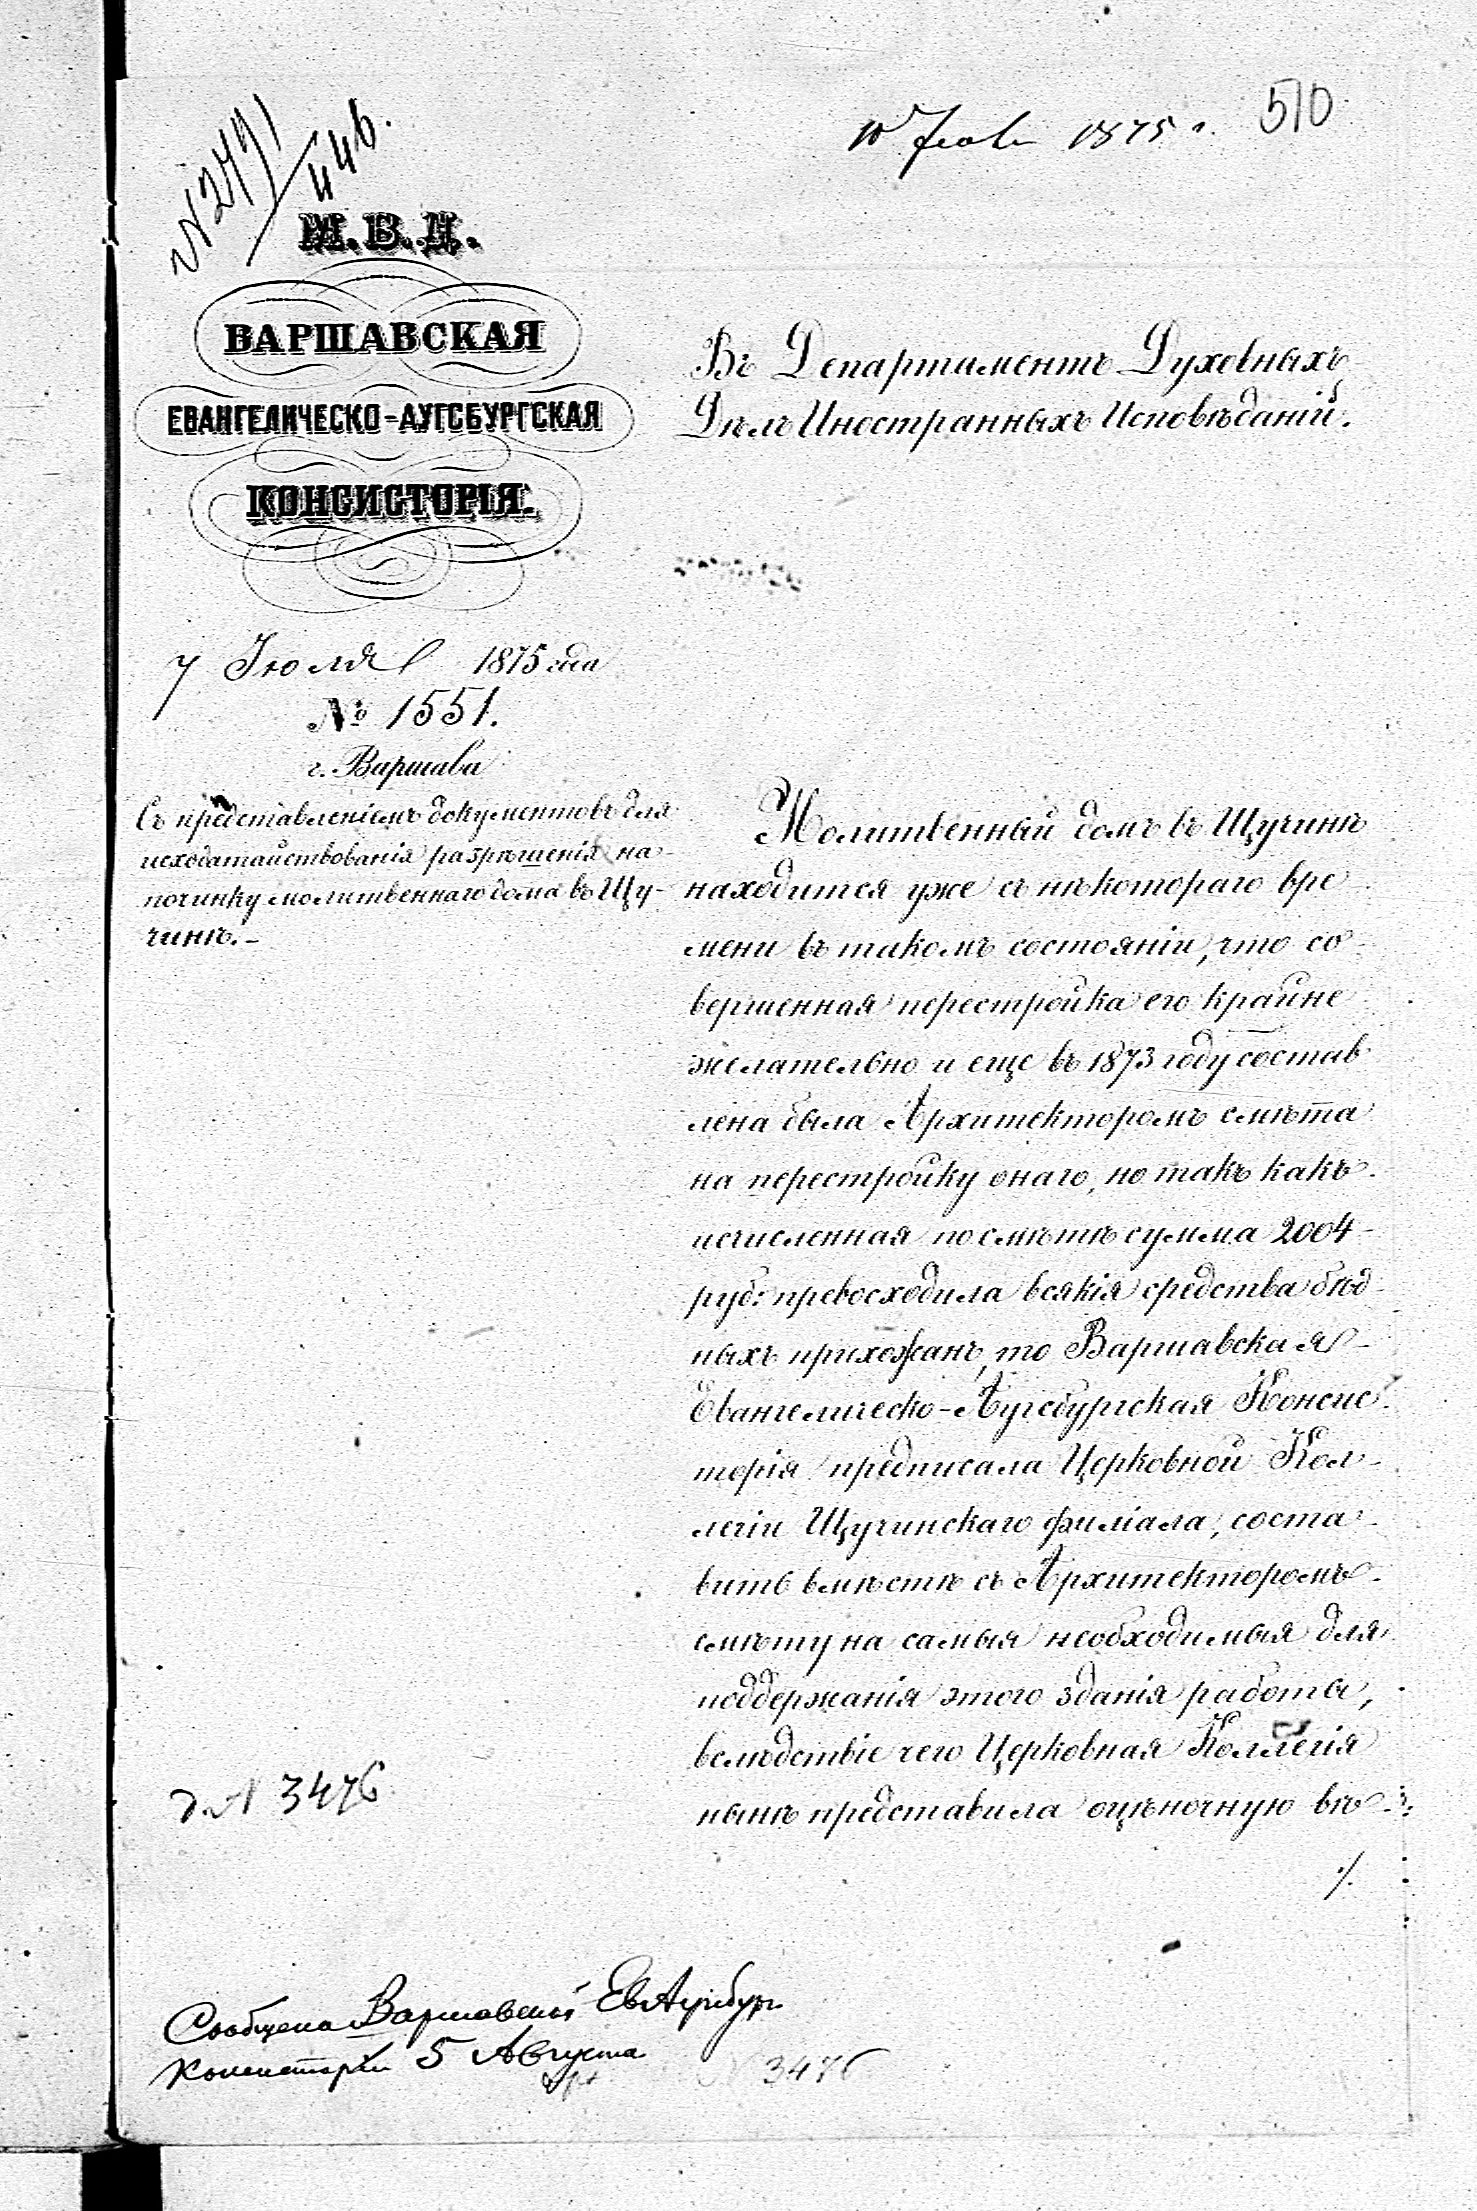 510
1875 г.
№ 2491
446.
М.В.Д.
ВАРШАВСКАЯ
ЕВАНГЕЛИЧЕСКО-АУГСБУРГСКАЯ
КОНСИСТОРІЯ.
7 Іюля 1875 года
№ 1551.
г. Варшава
Съ представленіемъ документовъ для
исходатайствованія разрѣшенія на
починку молитвеннаго дома въ Щу-
чинѣ.-
Въ Департаментъ Духовныхъ
Дѣлъ Иностранныхъ Исповѣданій.
Молитвенный домъ въ Щучинѣ
находится уже съ нѣкотораго вре
мени въ такомъ состояніи, что со
вершенная перестройка его крайне
желательно и еще въ 1873 году состав
лена была Архитекторомъ смѣта
на перестройку онаго, но такъ какъ
исчисленная по смѣтѣ сумма 2004
руб: превосходила всякія средства бѣд
ныхъ прихожанъ, то Варшавская
Евангелическо-Аугсбургская Консис
торія предписала Церковной Кол-
легіи Щучинскаго филіала, соста-
вить вмѣстѣ съ Архитекторомъ
смѣту на самыя необходимыя для
поддержанія этого зданія работы,
вслѣдствіе чего Церковная Коллегія
нынѣ представила оцѣночную вѣ-
./.
3476
Сообщено Варшавской Ев Аугсбург
Консисторіи 5 Августа
3476